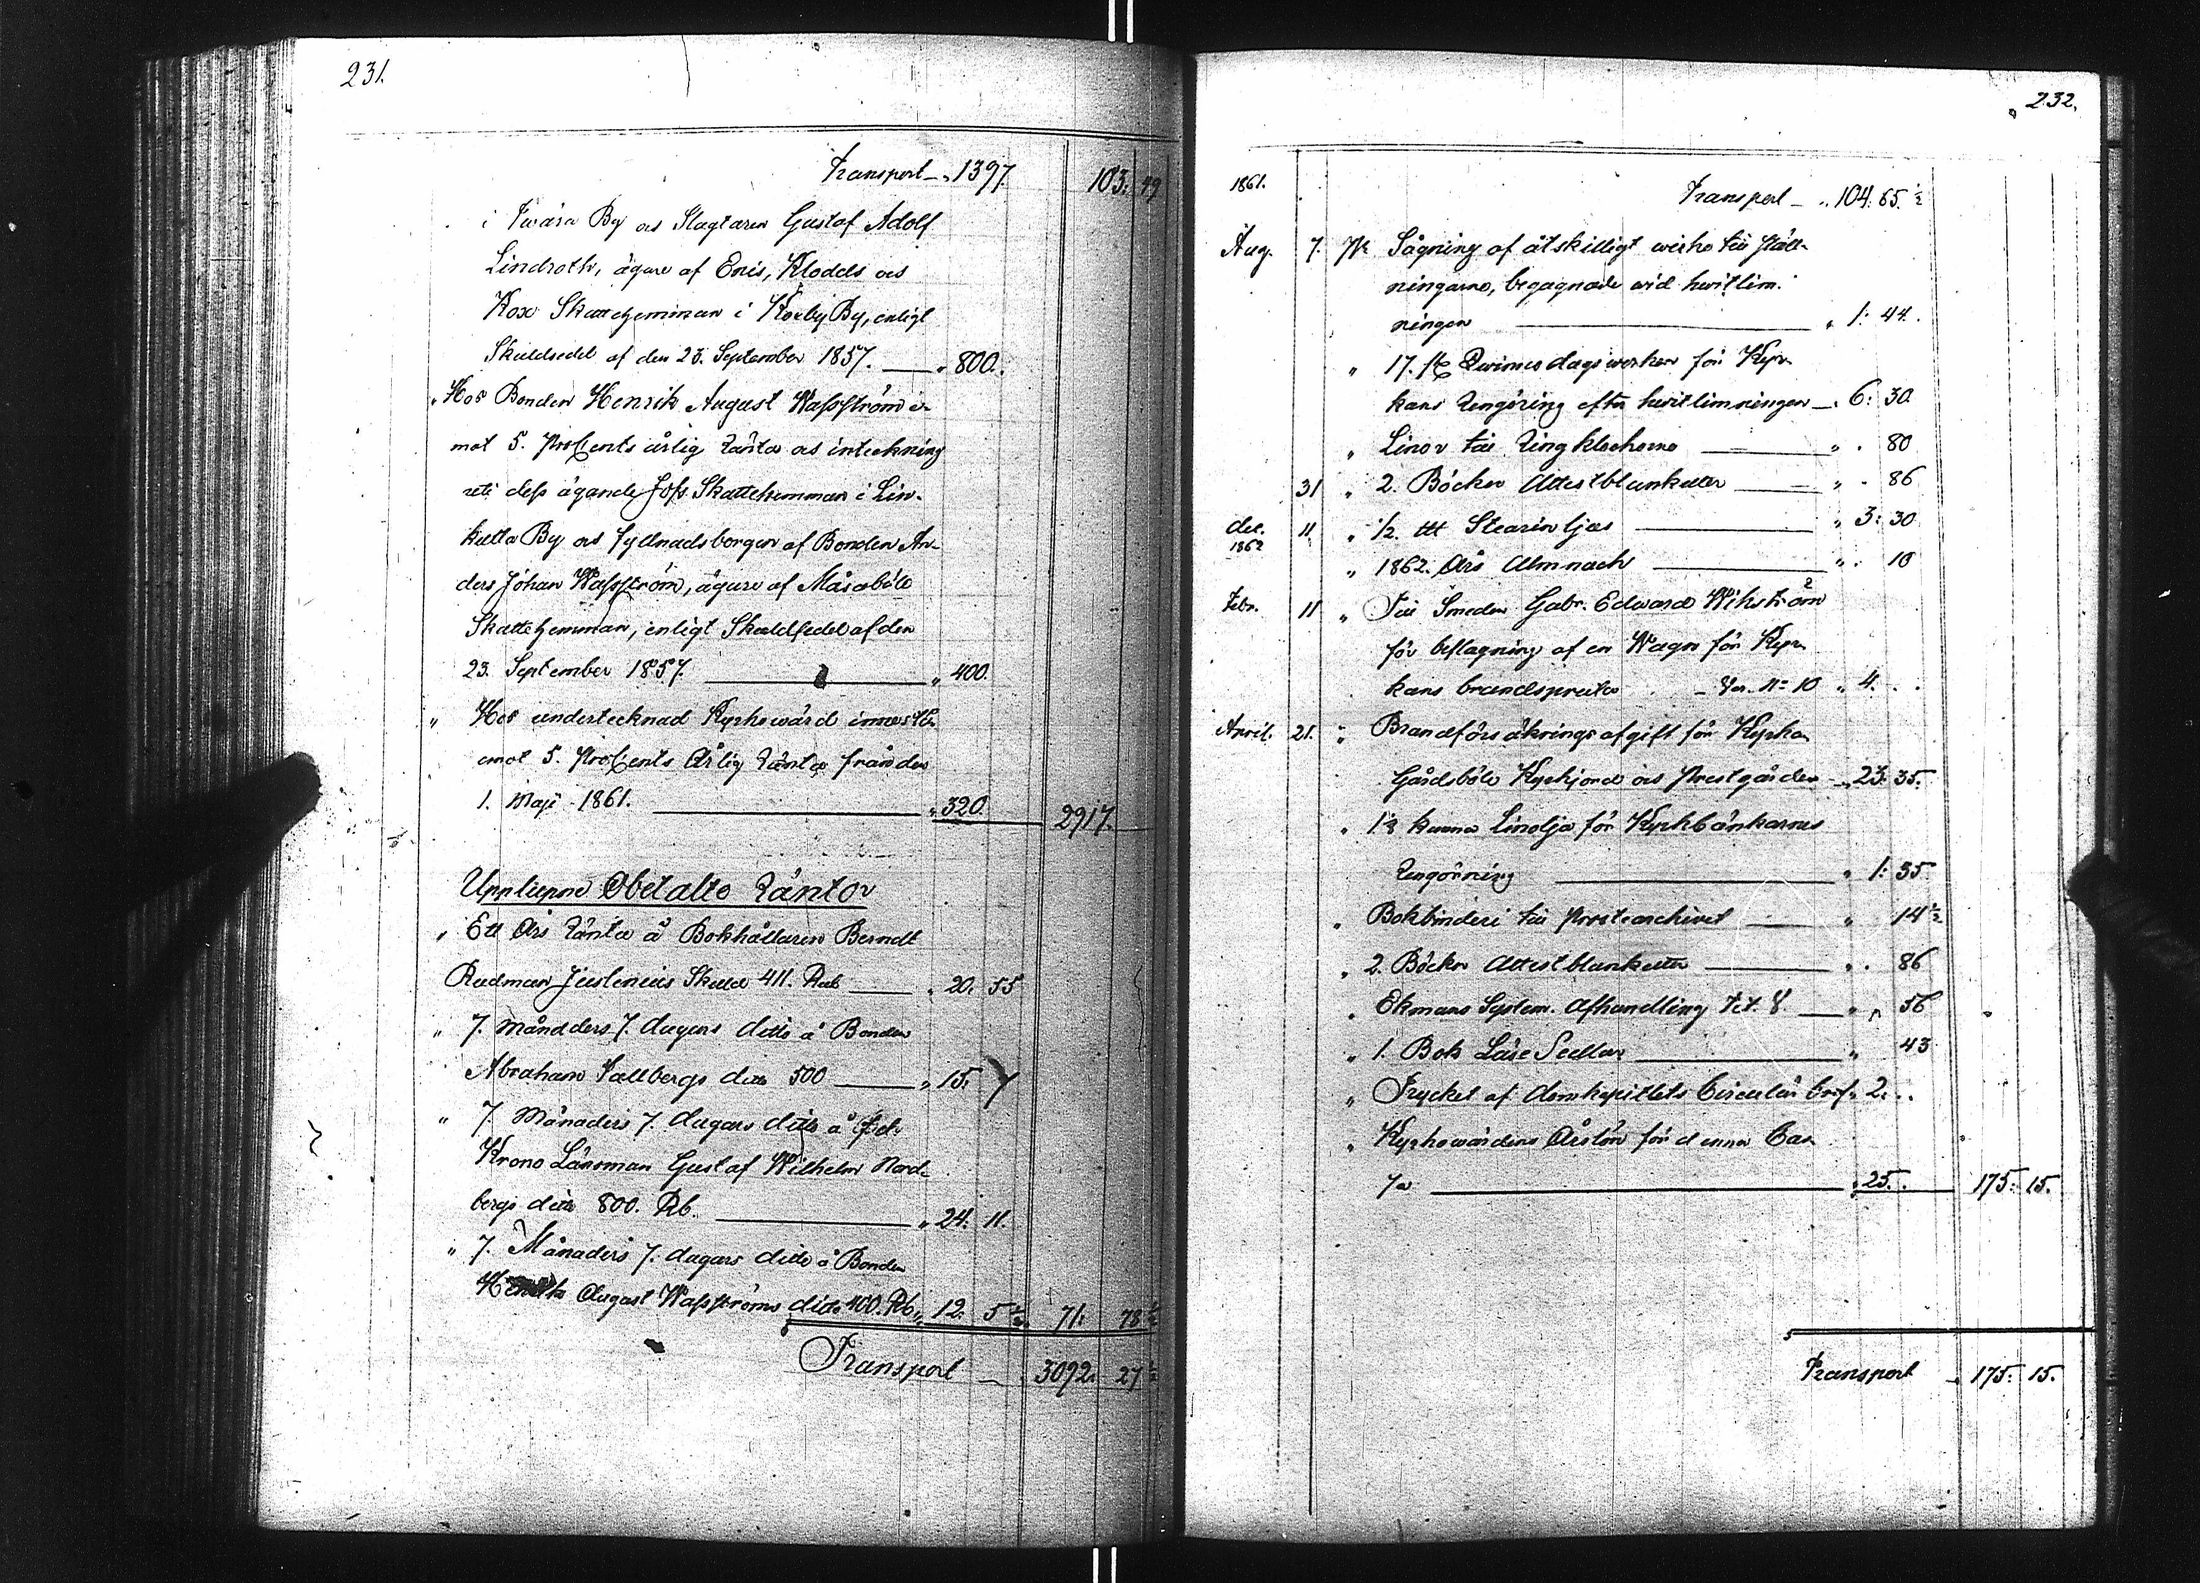 231.
Transport 1397. 103: 49
i Svärä By och Slagtaren Gustaf Adolf
Lindroth, ägare af Enis, Klockars och
Kox Skattehemman i Köxby By, enligt
Skuldsedel af den 23. September 1857. — „ 800.
„ Hos Bonden Henrik August Wassström e-
mot 5. ProCents årlig Ränta och inteckning
uti dess ägande Jofs Skattehemman i Lin-
kulla By och fyllnadsborgen af Bonden An-
ders Johan Wassström, ägare af Måsaböle
Skattehemman, enligt Skuldsedel af den
23. September 1857. — „ 400.
„ Hos undertecknad Kyrkowärd innestår
emot 5. ProCents Årlig Ränta från den
1. Maji 1861. — „ 320. 2917. —
Upplupne Obetalte Räntor
„ Ett Års Ränta å Bokhållaren Berndt
Rudman Juslenius Skuld 411. Rub — „ 20. 55
„ 7. månaders 7. dagars ditto å Bonden
Abraham Vallbergs ditto 500 — „ 15. 7
„ 7. Månaders 7. dagars ditto å f.d.
Krono Länsman Gustaf Wilhelm Nord-
bergs ditto 800. Rb. — „ 24. 11.
„ 7. Månaders 7. dagars ditto å Bonden
Henrik August Wassströms ditto 400. Rb „ 12. 5 ½ 71: 78 ½
Transport — 3092. 27 ½
232.
1861. Transport — „ 104. 65. ½
Aug. 7. Pr Sågning af åtskilligt wirke till ställ-
ningarne, begagnade wid hwitlim-
ningen — „ 1: 44.
„ 17. st Qwinnodagswerken för Kyr-
kans Rengöring efter hwitlimningen — „ 6: 30.
„ Linor till Ringklockorne — „ . 80
31 „ 2. Böcker Attestblanketter — „ . 86
dec. 11 „ ½. ℔ Stearin ljus — „ 3: 30
1862
„ 1862. Års Almnach — „ . 10
Febr. 11 „ Till Smeden Gabr. Edward Wikström
för beslagning af en Wagn för Kyr-
kans brandspruta — Ver. No 10 „ 4. . .
April. 21. „ Brandförsäkringsafgift för Kyrkan
Gårdsböle Kyrkjord och Prestgården — „ 23: 35.
„ 1½ kanna Linolja för Kyrkbänkarnes
Rengörning — „ 1: 35
„ Bokbinderi till Prostearchivet — „ 14 ½
„ 2. Böcker Attestblanketter — „ . 86
„ Ekmans System. Afhandling Tit. 8. — „ „ 56
„ 1. Bok Läse Sedlar — „ 43
„ Trycket af Domkapitlets Circulär bref „ 2. . .
„ Kyrkowärdens Årslön för denna Cas-
sa — „ 25. . 175: 15.
Transport — 175: 15.